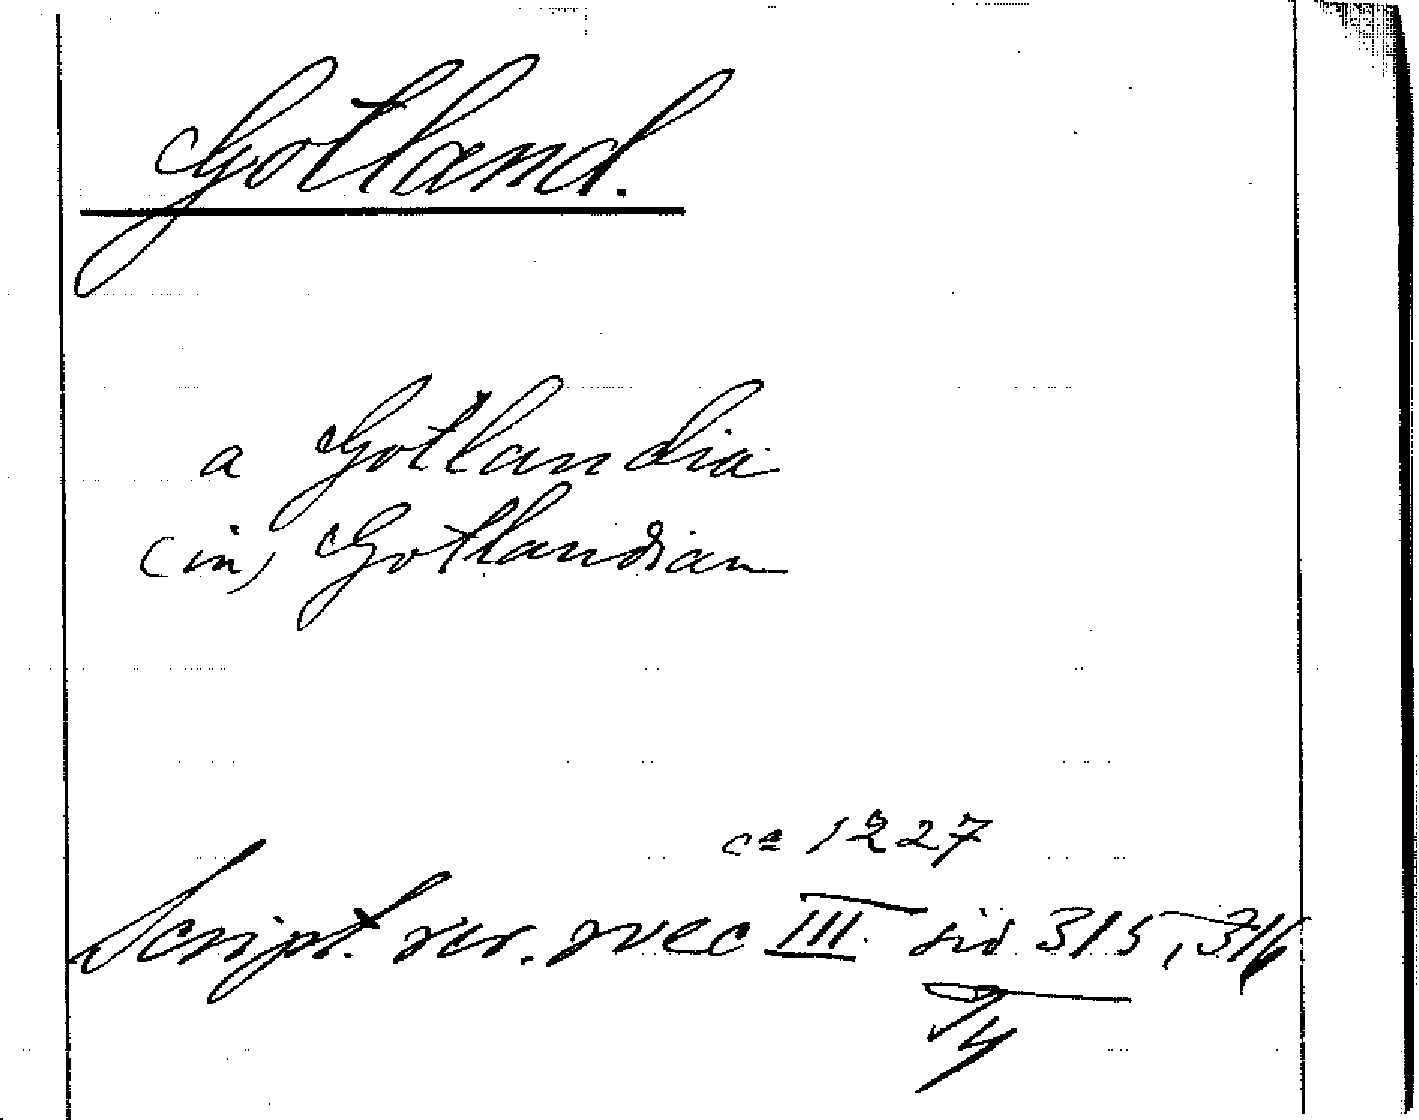 Gotland.
a Gotlandia
(in) Gotlandiam
ca 1227
Script. rer. svec III. sid 315, 316